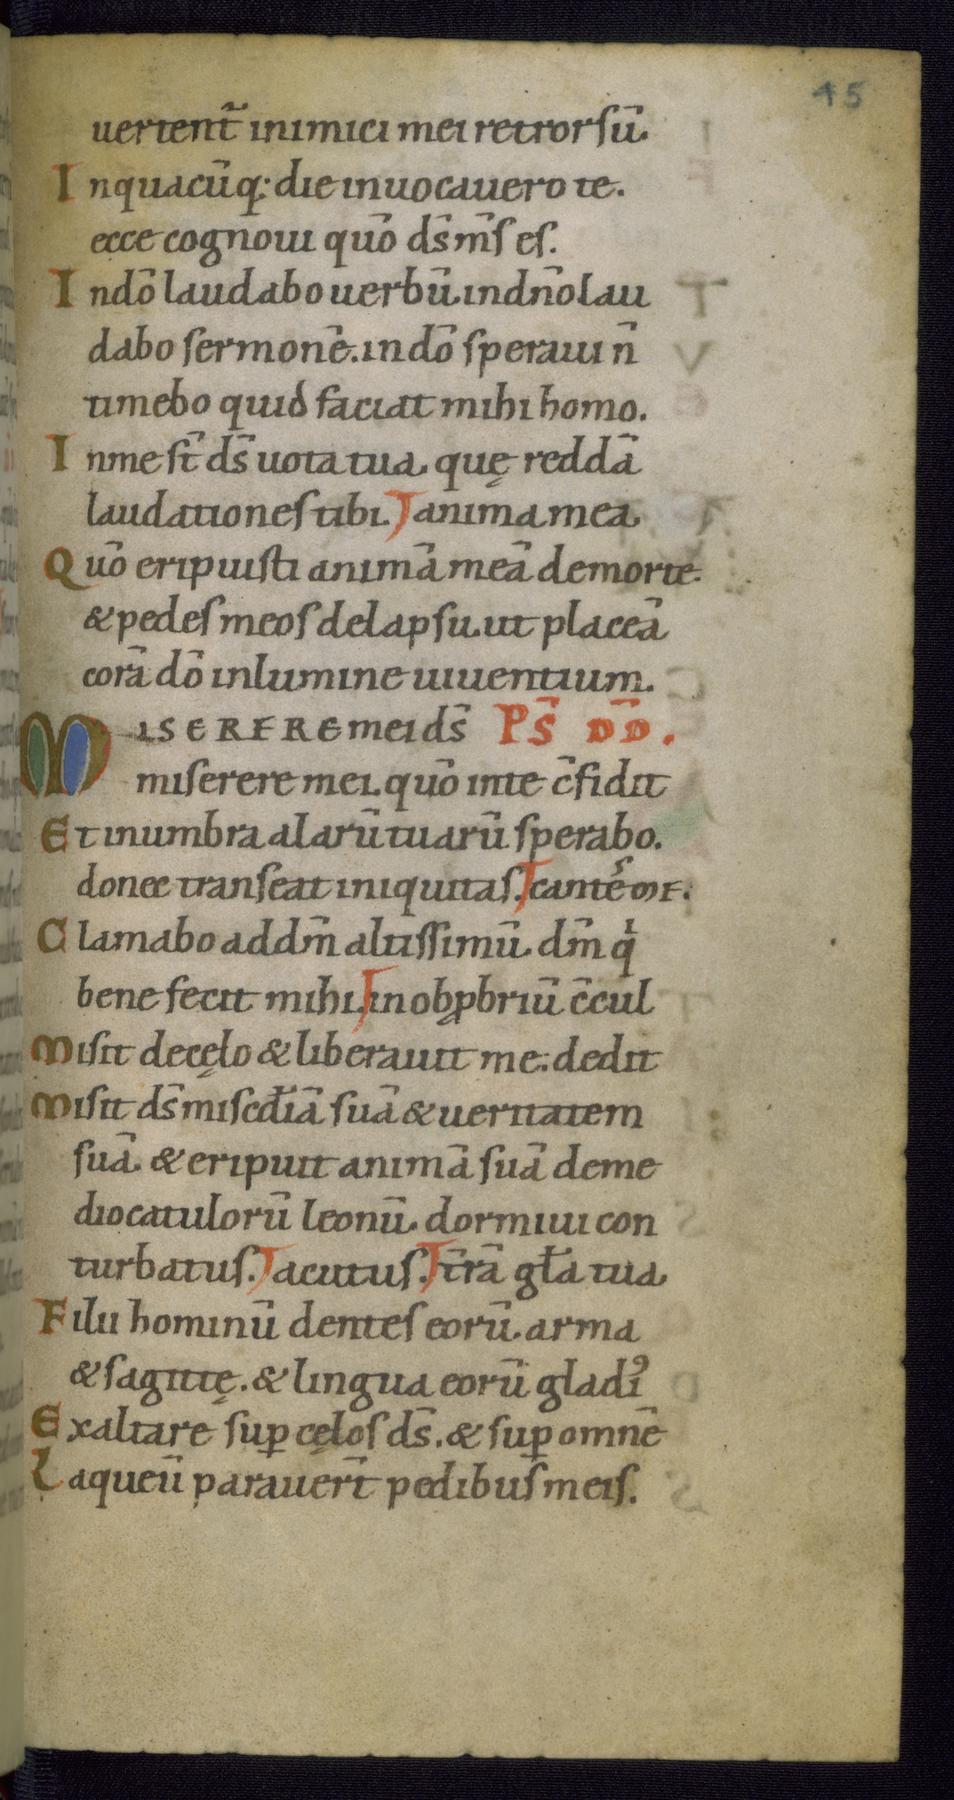 45
uertent̄ inimici mei retrorsū.
Inquacūq; die inuocauero te.
ecce cognoui quō ds̄ m̄s es.
Indō laudabo uerbū. indn̄o lau
dabo sermonē. indō speraui n̄
timebo quid faciat mihi homo.
Inme st̄ ds̄ uota tua. quę reddā
laudationes tibi. anima mea
Quō eripuisti animā meā demorte.
& pedes meos delapsu. ut placeā
corā dō inlumine uiuentium.
MISERERE mei ds̄ Ps̄ DD̄.
miserere mei. quō inte c̄fidit
Et inumbra alarū tuarū sperabo.
donec transeat iniquitas.
Clamabo addm̄ altissimū. dm̄ q̇
bene fecit mihi. inobꝓbriū c̄cul
Misit decęlo & liberauit me. dedit
Misit ds̄ miscd̄iā suā & ueritatem
suā. & eripuit animā suā deme
diocatulorū leonū. dormiui con
turbatus. acutus. t̄rā gl̄a tua
Filii hominū dentes eorū. arma
& sagittę. & lingua eorū gladi᾽
Exaltare suꝑ cęlos ds̄. & suꝑ omnē
Laqueū parauer̄t pedibus meis.